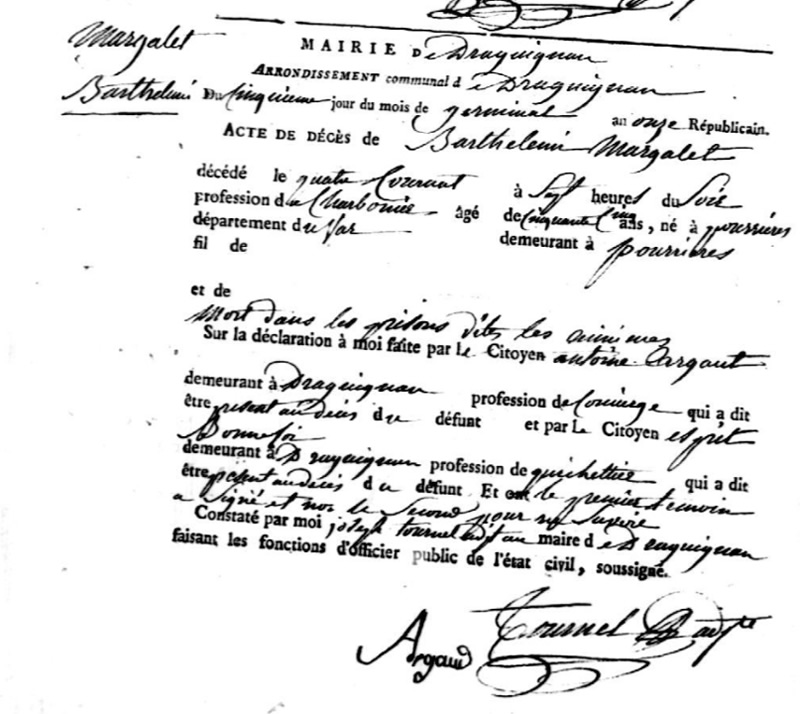 Margalet
Barthelemi
MAIRIE De Draguignan
ARRONDISSEMENT communal de Draguignan
Du Cinquieme jour du mois de germinal an onze Républicain.
ACTE DE DÉCÈS de Barthelemi Margalet
décédé le quatre Courant à Sept heures du Soir
profession de Charbonier âgé de Cinquante Cinq ans, né à pourrières
département du Var demeurant à pourrieres
fil de
et de
Mort dans les prisons dites les minimes
Sur la déclaration à moi faite par Le Citoyen antoine argaut
demeurant à Draguignan profession de Concierge qui a dit
être present au deces du défunt et par Le Citoyen esprit
Bonnefoi
demeurant à Draguignan profession de guichettier qui a dit
être present au deces du défunt Et le premier temoin
a signé et non le Second pour ne Savoir
Constaté par moi joseph tournel adjt au maire de Draguignan
faisant les fonctions d'officier public de l'état civil, soussigné.
Tournel
Argaud